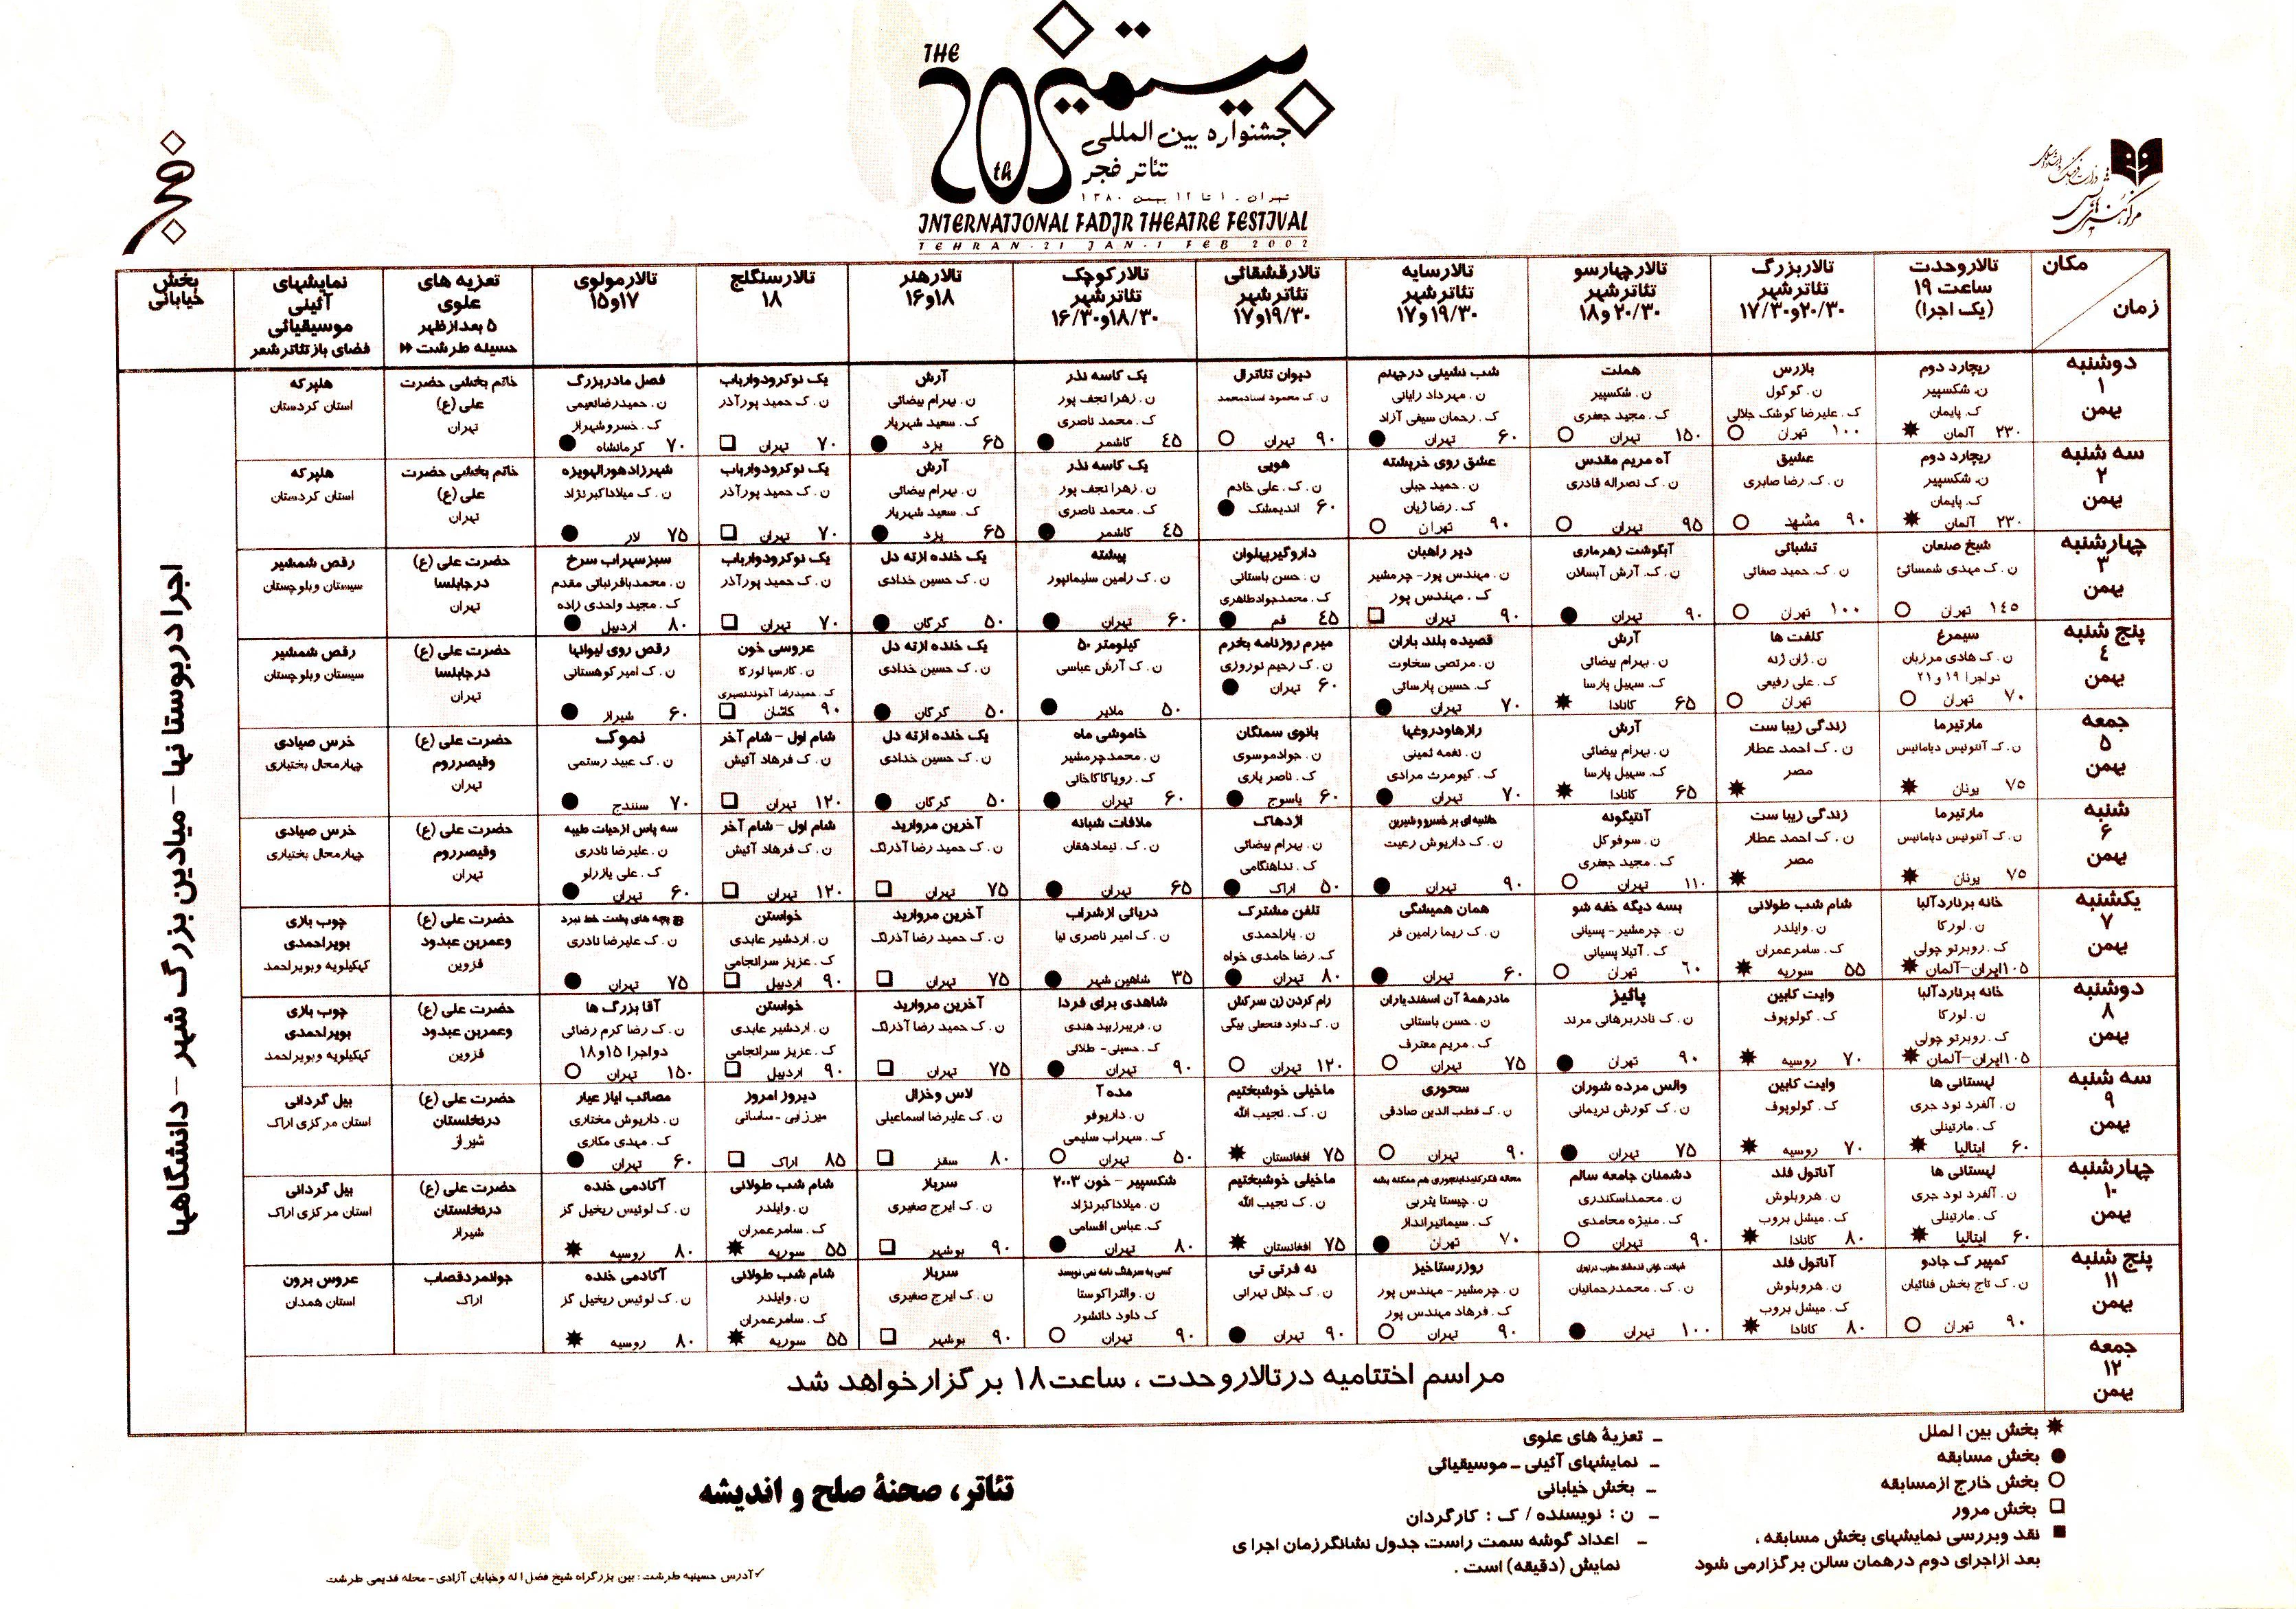 THE
20th
بیستمین
جشنواره بین المللی
تئاتر فجر
تهران . ۱ تا ۱۲ بهمن ۱۳۸۰
INTERNATIONAL FADJR THEATRE FESTIVAL
TEHRAN-21 JAN-1 FEB 2002
فجر
مرکز هنرهای نمایشی
مکان
زمان
تالار وحدت
ساعت ۱۹
(یک اجرا)
تالار بزرگ
تئاتر شهر
۲۰/۳۰ و ۱۷/۳۰
تالار چهارسو
تئاتر شهر
۲۰/۳۰ و ۱۸
تالار سایه
تئاتر شهر
۱۹/۳۰ و ۱۷
تالار قشقائی
تئاتر شهر
۱۹/۳۰ و ۱۷
تالار کوچک
تئاتر شهر
۱۸/۳۰ و ۱۶/۳۰
تالار هنر
۱۸ و ۱۶
تالار سنگلج
۱۸
تالار مولوی
۱۷ و ۱۵
تعزیه های
علوی
۵ بعد از ظهر
حسینه طرشت
نمایشهای
آئینی
موسیقیائی
فضای باز تئاتر شهر
بخش
خیابانی
دوشنبه
۱
بهمن
ریچارد دوم
ن. شکسپیر
ک. پایمان
۲۳۰ آلمان
بازرس
ن. گوگول
ک. علیرضا کوشک جلالی
۱۰۰ تهران
هملت
ن. شکسپیر
ک. مجید جعفری
۱۵۰ تهران
شب نشینی در جهنم
ن. مهرداد رایانی
ک. رحمان سیفی آزاد
۶۰ تهران
دیوان تئاترال
ن. ک محمود استادمحمد
۹۰ تهران
یک کاسه نذر
ن. زهرا نجف پور
ک. محمد ناصری
۴۵ کاشمر
آرش
ن. بهرام بیضائی
ک. سعید شهریار
۶۵ یزد
یک نوکر و دو ارباب
ن. ک حمید پورآذر
۷۰ تهران
فصل مادربزرگ
ن. حمیدرضا نعیمی
ک. خسرو شهراز
۷۰ کرمانشاه
خاتم بخشی حضرت
علی (ع)
تهران
هلپرکه
استان کردستان
سه شنبه
۲
بهمن
ریچارد دوم
ن. شکسپیر
ک. پایمان
۲۳۰ آلمان
عشیق
ن. ک. رضا صابری
۹۰ مشهد
آه مریم مقدس
ن. ک نصراله قادری
۹۵ تهران
عشق روی خرپشته
ن. حمید جبلی
ک. رضا ژیان
۹۰ تهران
هویی
ن. ک. علی خادم
۶۰ اندیمشک
یک کاسه نذر
ن. زهرا نجف پور
ک. محمد ناصری
۴۵ کاشمر
آرش
ن. بهرام بیضائی
ک. سعید شهریار
۶۵ یزد
یک نوکر و دو ارباب
ن. ک حمید پورآذر
۷۰ تهران
شهرزاد هورالهویزه
ن. ک میلاد اکبرنژاد
۷۵ لار
خاتم بخشی حضرت
علی (ع)
تهران
هلپرکه
استان کردستان
چهارشنبه
۳
بهمن
شیخ صنعان
ن. ک مهدی شمسائی
۱۴۵ تهران
تشبائی
ن. ک. حمید صفائی
۱۰۰ تهران
آبگوشت زهرماری
ن. ک. آرش آبسالان
۹۰ تهران
دیر راهبان
ن. مهندس پور - چرمشیر
ک. مهندس پور
۹۰ تهران
داروگیر پهلوان
ن. حسن باستانی
ک. محمدجواد طاهری
۴۵ قم
پیشته
ن. ک رامین سلیمانپور
۶۰ تهران
یک خنده از ته دل
ن. ک حسین خدادی
۵۰ گرگان
یک نوکر و دو ارباب
ن. ک حمید پورآذر
۷۰ تهران
سبز سهراب سرخ
ن. محمدباقر نباتی مقدم
ک. مجید واحدی زاده
۸۰ اردبیل
حضرت علی (ع)
در جابلسا
تهران
رقص شمشیر
سیستان و بلوچستان
پنج شنبه
۴
بهمن
سیمرغ
ن. ک هادی مرزبان
دو اجرا ۱۹ و ۲۱
۷۰ تهران
کلفت ها
ن. ژان ژنه
ک. علی رفیعی
تهران
آرش
ن. بهرام بیضائی
ک. سهیل پارسا
۶۵ کانادا
قصیده بلند باران
ن. مرتضی سخاوت
ک. حسین پارسائی
۷۰ تهران
میرم روزنامه بخرم
ن. ک رحیم نوروزی
۶۰ تهران
کیلومتر ۵۰
ن. ک آرش عباسی
۵۰ ملایر
یک خنده از ته دل
ن. ک حسین خدادی
۵۰ گرگان
عروسی خون
ن. گارسیا لورکا
ک. حمیدرضا آخوندنصیری
۹۰ کاشان
رقص روی لیوانها
ن. ک امیر کوهستانی
۶۰ شیراز
حضرت علی (ع)
در جابلسا
تهران
رقص شمشیر
سیستان و بلوچستان
جمعه
۵
بهمن
مارتیرما
ن. ک آنتونیس دیامانیس
۷۵ یونان
زندگی زیباست
ن. ک احمد عطار
مصر
آرش
ن. بهرام بیضائی
ک. سهیل پارسا
۶۵ کانادا
رازها و دروغها
ن. نغمه ثمینی
ک. کیومرث مرادی
۷۰ تهران
بانوی سمنگان
ن. جواد موسوی
ک. ناصر یاری
۶۰ یاسوج
خاموشی ماه
ن. محمد چرمشیر
ک. رویا کاکاخانی
۶۰ تهران
یک خنده از ته دل
ن. ک حسین خدادی
۵۰ گرگان
شام اول - شام آخر
ن. ک فرهاد آئیش
۱۲۰ تهران
نموک
ن. ک عبید رستمی
۷۰ سنندج
حضرت علی (ع)
و قیصر روم
تهران
خرس صیادی
چهارمحال بختیاری
شنبه
۶
بهمن
مارتیرما
ن. ک آنتونیس دیامانیس
۷۵ یونان
زندگی زیباست
ن. ک احمد عطار
مصر
آنتیگونه
ن. سوفوکل
ک. مجید جعفری
۱۱۰ تهران
حاشیه ای بر خسرو و شیرین
ن. ک داریوش رعیت
۹۰ تهران
اژدهاک
ن. بهرام بیضائی
ک. ندا هنگامی
۵۰ اراک
ملاقات شبانه
ن. ک. نیما دهقان
۶۵ تهران
آخرین مروارید
ن. ک حمید رضا آذرنگ
۷۵ تهران
شام اول - شام آخر
ن. ک فرهاد آئیش
۱۲۰ تهران
سه پاس از حیات طیبه
ن. علیرضا نادری
ک. علی یازرلو
۶۰ تهران
حضرت علی (ع)
و قیصر روم
تهران
خرس صیادی
چهارمحال بختیاری
یکشنبه
۷
بهمن
خانه برناردآلبا
ن. لورکا
ک. روبرتو چولی
۱۰۵ ایران-آلمان
شام شب طولانی
ن. وایلدر
ک. سامر عمران
۵۵ سوریه
بسه دیگه خفه شو
ن. چرمشیر - پسیانی
ک. آتیلا پسیانی
۶۰ تهران
همان همیشگی
ن. ک ریما رامین فر
۶۰ تهران
تلفن مشترک
ن. یاراحمدی
ک. رضا حامدی خواه
۸۰ تهران
دریائی از شراب
ن. ک امیر ناصری نیا
۳۵ شاهین شهر
آخرین مروارید
ن. ک حمید رضا آذرنگ
۷۵ تهران
خواستن
ن. اردشیر عابدی
ک. عزیز سرانجامی
۹۰ اردبیل
۴ بچه های پشت خط نبرد
ن. ک علیرضا نادری
۷۵ تهران
حضرت علی (ع)
و عمر بن عبدود
قزوین
چوب بازی
بویراحمدی
کهکیلویه و بویراحمد
دوشنبه
۸
بهمن
خانه برناردآلبا
ن. لورکا
ک. روبرتو چولی
۱۰۵ ایران-آلمان
وایت کابین
ک. گولوپوف
۷۰ روسیه
پائیز
ن. ک نادر برهانی مرند
۹۰ تهران
مادر همهٔ آن اسفندیاران
ن. حسن باستانی
ک. مریم معترف
۷۵ تهران
رام کردن زن سرکش
ن. ک داود فتحعلی بیگی
۱۲۰ تهران
شاهدی برای فردا
ن. فریبرز بید هندی
ک. حسینی - طلائی
۹۰ تهران
آخرین مروارید
ن. ک حمید رضا آذرنگ
۷۵ تهران
خواستن
ن. اردشیر عابدی
ک. عزیز سرانجامی
۹۰ اردبیل
آقا بزرگ ها
ن. ک رضا کرم رضائی
دو اجرا ۱۵ و ۱۸
۱۵۰ تهران
حضرت علی (ع)
و عمر بن عبدود
قزوین
چوب بازی
بویراحمدی
کهکیلویه و بویراحمد
سه شنبه
۹
بهمن
لهستانی ها
ن. آلفرد نود جری
ک. مارتینلی
۶۰ ایتالیا
وایت کابین
ک. گولوپوف
۷۰ روسیه
والس مرده شوران
ن. ک کورش نریمانی
۷۵ تهران
سحوری
ن. ک قطب الدین صادقی
۹۰ تهران
ما خیلی خوشبختیم
ن. ک. نجیب الله
۷۵ افغانستان
مده آ
ن. داریوفو
ک. سهراب سلیمی
۵۰ تهران
لاس و خزال
ن. ک علیرضا اسماعیلی
۸۰ سقز
دیروز امروز
میرزایی - ساسانی
۸۵ اراک
مصائب ایاز عیار
ن. داریوش مختاری
ک. مهدی مکاری
۶۰ تهران
حضرت علی (ع)
در نخلستان
شیراز
بیل گردانی
استان مرکزی اراک
چهارشنبه
۱۰
بهمن
لهستانی ها
ن. آلفرد نود جری
ک. مارتینلی
۶۰ ایتالیا
آناتول فلد
ن. هروبلوش
ک. میشل بروب
۸۰ کانادا
دشمنان جامعه سالم
ن. محمد اسکندری
ک. منیژه محامدی
۹۰ تهران
ن. چیستا یثربی
ک. سیما تیرانداز
۷۰ تهران
ما خیلی خوشبختیم
ن. ک نجیب الله
۷۵ افغانستان
شکسپیر - خون ۲۰۰۳
ن. میلاد اکبرنژاد
ک. عباس اقسامی
۸۰ تهران
سرباز
ن. ک ایرج صغیری
۹۰ بوشهر
شام شب طولانی
ن. وایلدر
ک. سامر عمران
۵۵ سوریه
آکادمی خنده
ن. ک لوئیس ریخیل گز
۸۰ روسیه
حضرت علی (ع)
در نخلستان
شیراز
بیل گردانی
استان مرکزی اراک
پنج شنبه
۱۱
بهمن
کمپیرک جادو
ن. ک تاج بخش فنائیان
۹۰ تهران
آناتول فلد
ن. هروبلوش
ک. میشل بروب
۸۰ کانادا
ن. ک. محمد رحمانیان
۱۰۰ تهران
روز رستاخیز
ن. چرمشیر - مهندس پور
ک. فرهاد مهندس پور
۹۰ تهران
نه فرتی تی
ن. ک جلال تهرانی
۹۰ تهران
کسی به سرهنگ نامه نمی نویسد
ن. والتر اکوستا
ک داود دانشور
۹۰ تهران
سرباز
ن. ک ایرج صغیری
۹۰ بوشهر
شام شب طولانی
ن. وایلدر
ک. سامر عمران
۵۵ سوریه
آکادمی خنده
ن. ک لوئیس ریخیل گز
۸۰ روسیه
جوانمرد قصاب
اراک
عروس برون
استان همدان
جمعه
۱۲
بهمن
مراسم اختتامیه در تالار وحدت ، ساعت ۱۸ برگزار خواهد شد
اجرا در بوستانها - میادین بزرگ شهر - دانشگاهها
✸ بخش بین الملل
● بخش مسابقه
○ بخش خارج از مسابقه
□ بخش مرور
■ نقد و بررسی نمایشهای بخش مسابقه ،
بعد از اجرای دوم در همان سالن برگزار می شود
ـ تعزیهٔ های علوی
ـ نمایشهای آئینی ـ موسیقیائی
ـ بخش خیابانی
ـ ن : نویسنده / ک : کارگردان
ـ اعداد گوشه سمت راست جدول نشانگر زمان اجرای
نمایش (دقیقه) است .
تئاتر، صحنهٔ صلح و اندیشه
✓آدرس حسینیه طرشت : بین بزرگراه شیخ فضل اله و خیابان آزادی - محله قدیمی طرشت